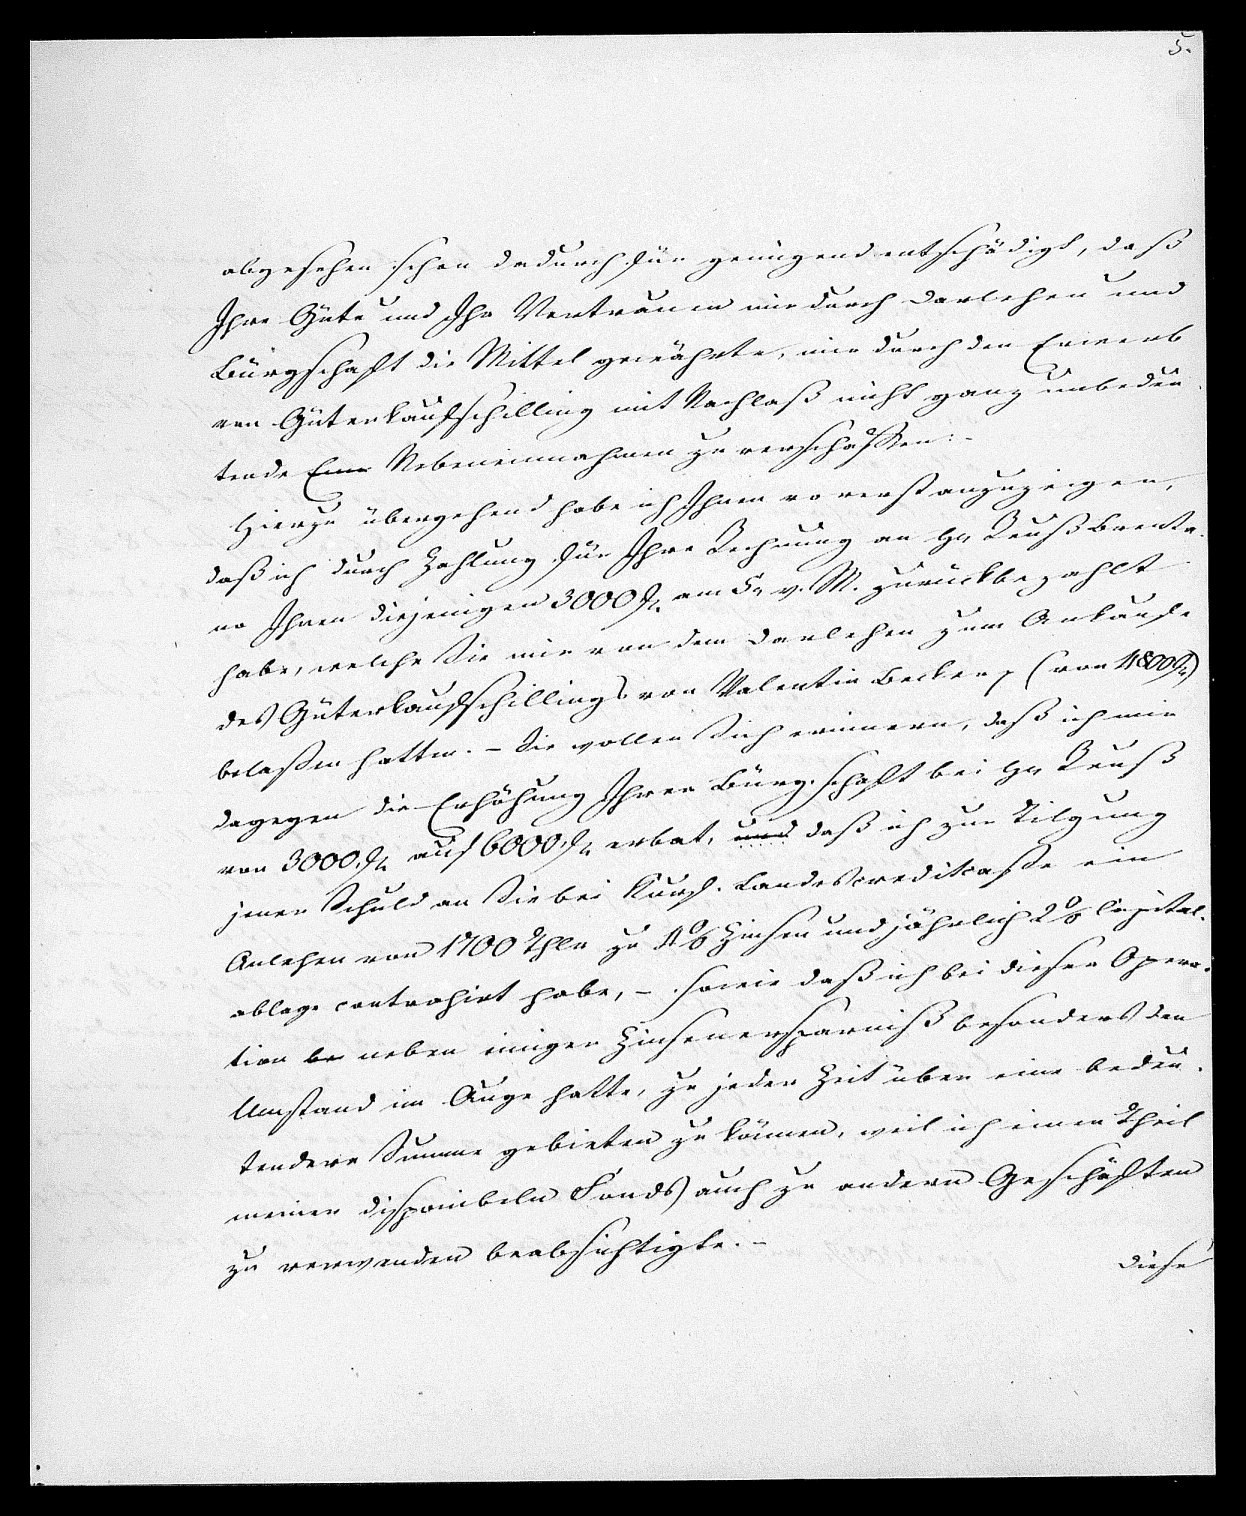 5.
abgesehen schon dadurch für genügend entschädigt, daß
Ihre Güte und Ihr Vertrauen mir durch Darlehen und
Bürgschaft die Mittel gewährte, mir durch den Erwerb
von Güterkaufschilling mit Nachlaß nicht ganz unbedeu-
tende Ein Nebeneinnahmen zu verschaffen.-
Hierzu übergehend habe ich Ihnen vorerst anzuzeigen,
daß ich durch Zahlung für Ihre Rechnung an Hr Reuß Brenta-
no Ihnen diejenigen 3000 fl. am 5n v. M. zurückbezahlt
habe, welche Sie mir von dem Darlehen zum Ankaufe
des Güterkaufschillings von Valentin Becker, (von 4800 fl.)
belaßen hatten. - Sie wollen sich erinnern, daß ich mir
dagegen die Erhöhung Ihrer Bürgschaft bei Hr Reuß
von 3000 fl. auf 6000 fl. erbat, und daß ich zur Tilgung
jener Schuld an Sie bei Kurf. Landescreditcasse ein
Anlehen von 1700 Thlr zu 4 % Zinsen und jährlich 2 % Capital-
ablage contrahirt habe, - sowie daß ich bei dieser Opera-
tion be neben einiger Zinsenersparniß besonders den
Umstand im Auge hatte, zu jeder Zeit über eine bedeu-
tendere Summe gebieten zu können, weil ich einen Theil
meiner disponibeln Fonds auch zu andern Geschäften
zu verwenden beabsichtigte. -
Diese